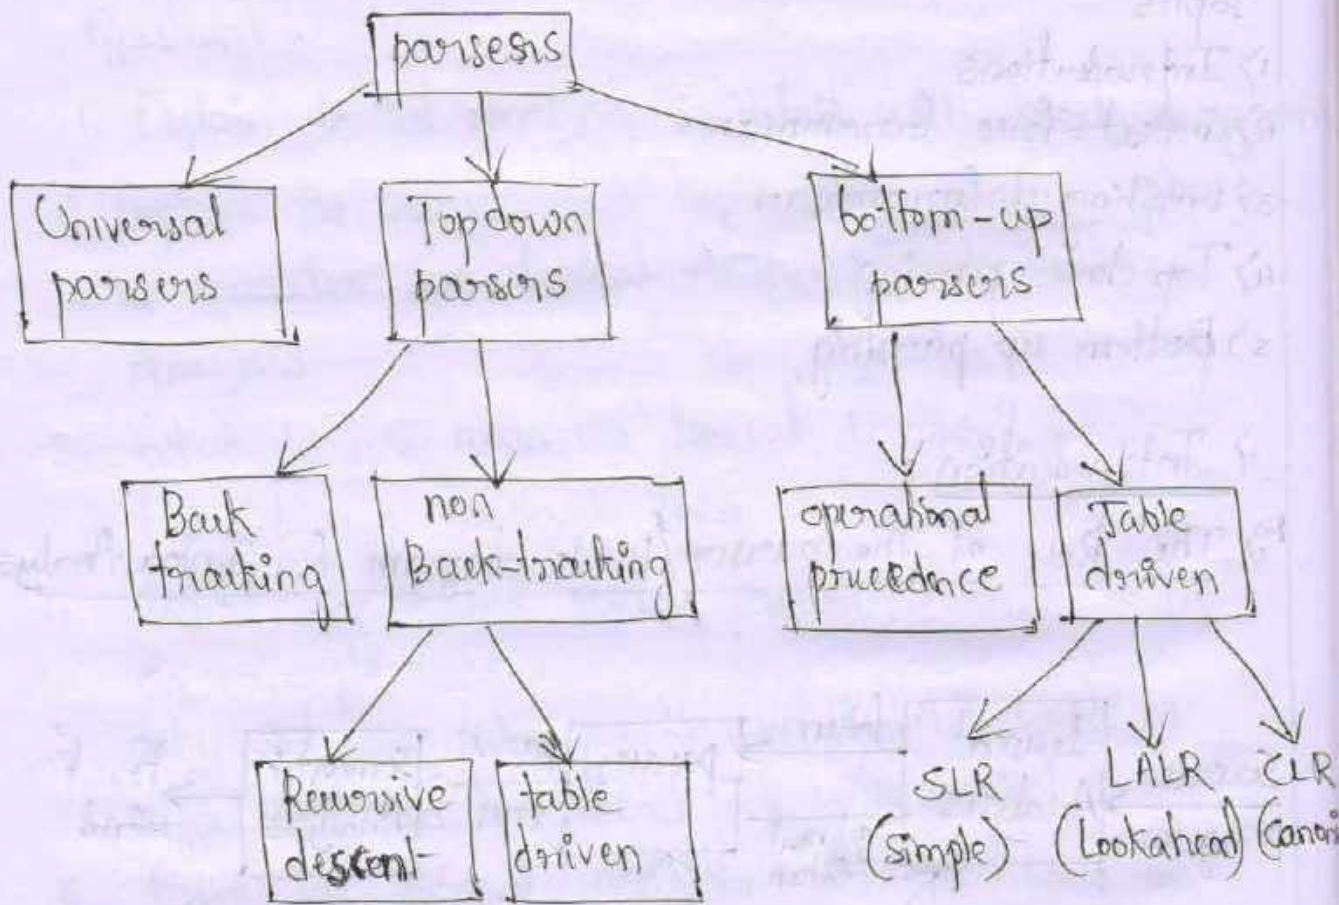 parsers
Universal
parsers
Top down
parsers
bottom-up
parsers
Back
tracking
non
Back-tracking
operational
precedence
Table
driven
Recursive
descent
table
driven
SLR
(simple)
LALR
(Lookahead)
CLR